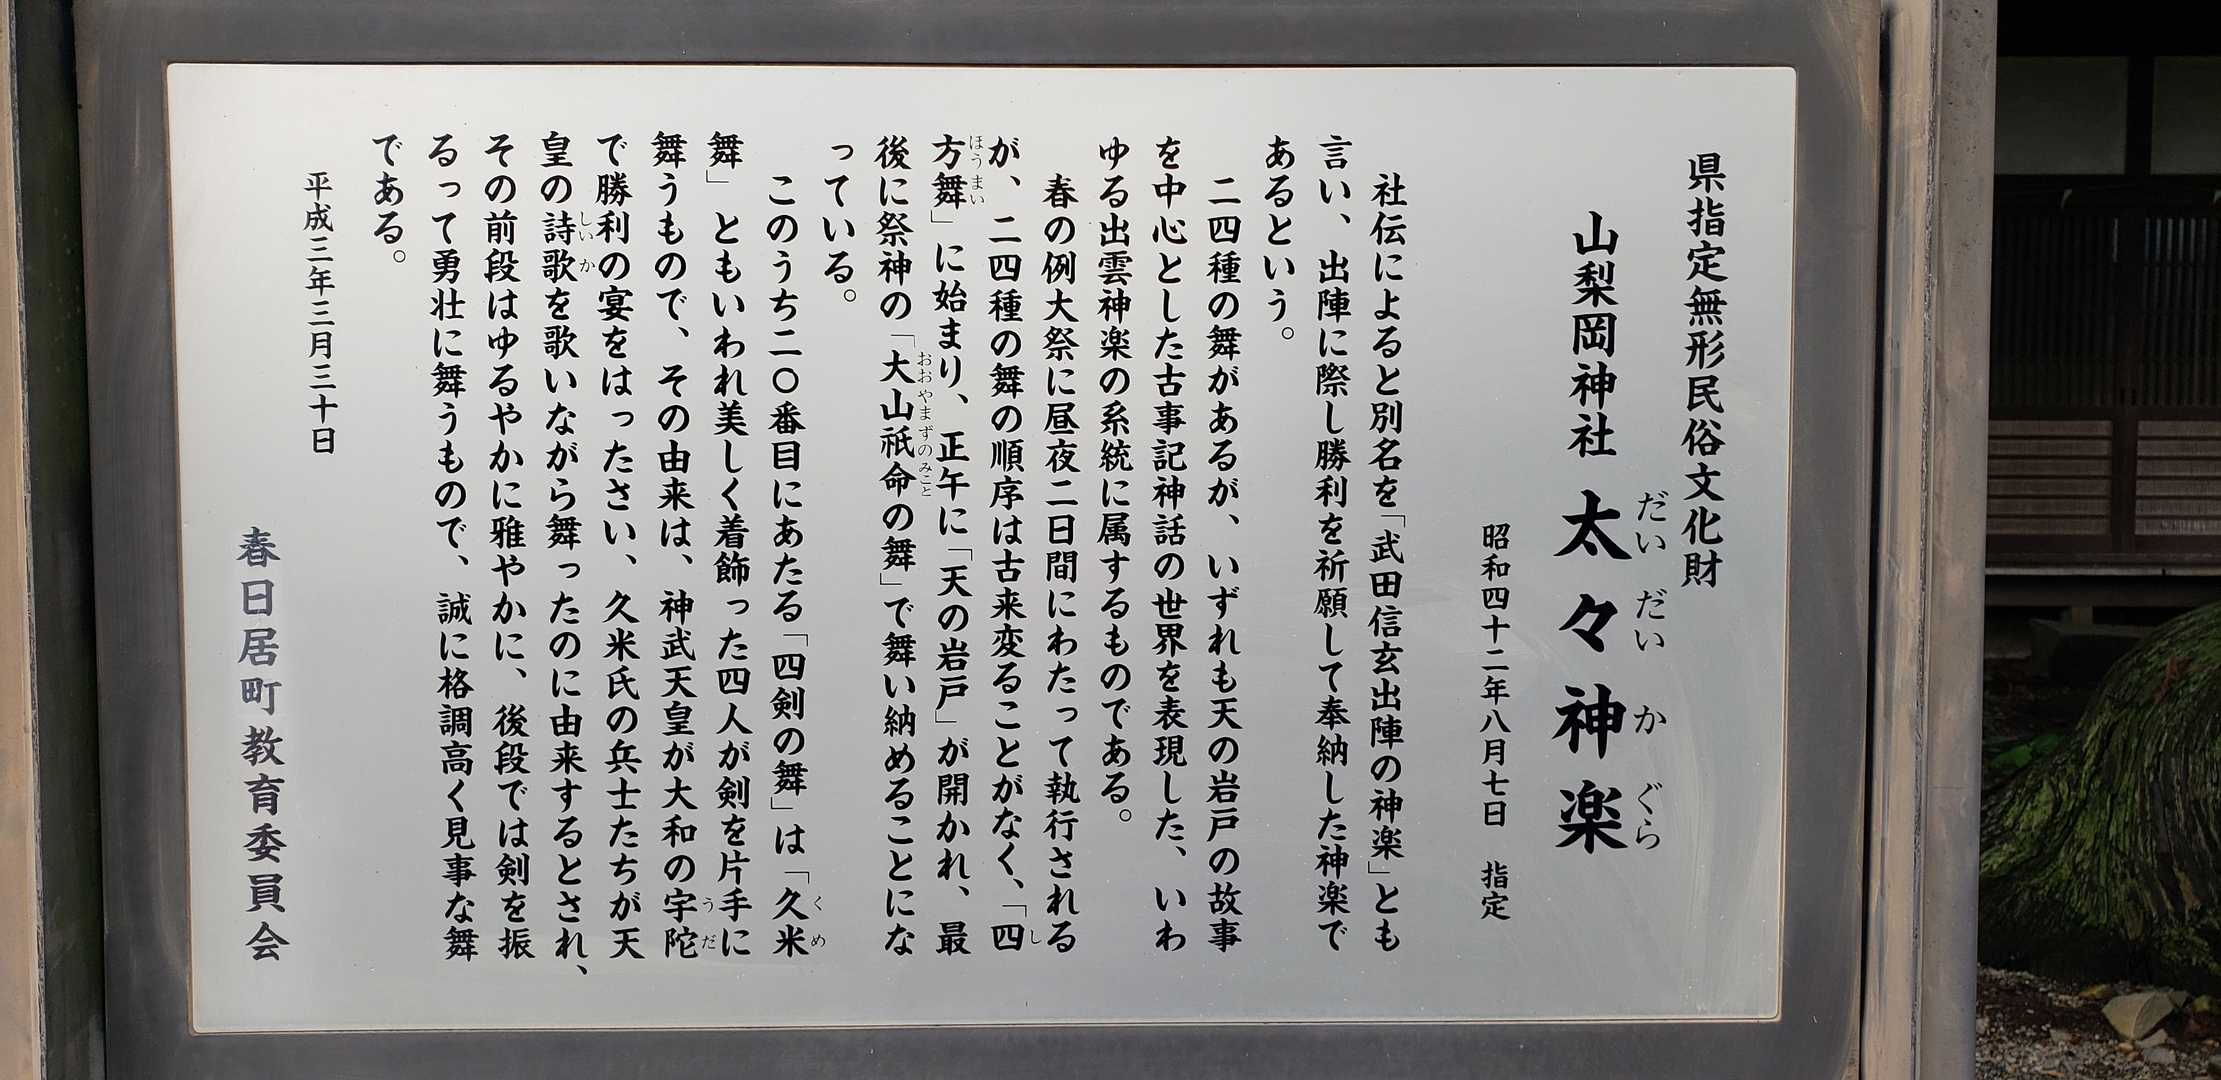 県指定無形民俗文化財
山梨岡神社 太々神楽
だい だい か ぐら
昭和四十二年八月七日 指定
社伝によると別名を「武田信玄出陣の神楽」とも
言い、出陣に際し勝利を祈願して奉納した神楽で
あるという。
二四種の舞があるが、いずれも天の岩戸の故事
を中心とした古事記神話の世界を表現した、いわ
ゆる出雲神楽の系統に属するものである。
春の例大祭に昼夜二日間にわたって執行される
が、二四種の舞の順序は古来変ることがなく、「四
し
方舞」に始まり、正午に「天の岩戸」が開かれ、最
ほう まい
後に祭神の「大山祇命の舞」で舞い納めることにな
おおやまずのみこと
っている。
このうち二〇番目にあたる「四剣の舞」は「久米
く め
舞」ともいわれ美しく着飾った四人が剣を片手に
舞うもので、その由来は、神武天皇が大和の宇陀
う だ
で勝利の宴をはったさい、久米氏の兵士たちが天
皇の詩歌を歌いながら舞ったのに由来するとされ、
しい か
その前段はゆるやかに雅やかに、後段では剣を振
るって勇壮に舞うもので、誠に格調高く見事な舞
である。
平成三年三月三十日
春日居町教育委員会